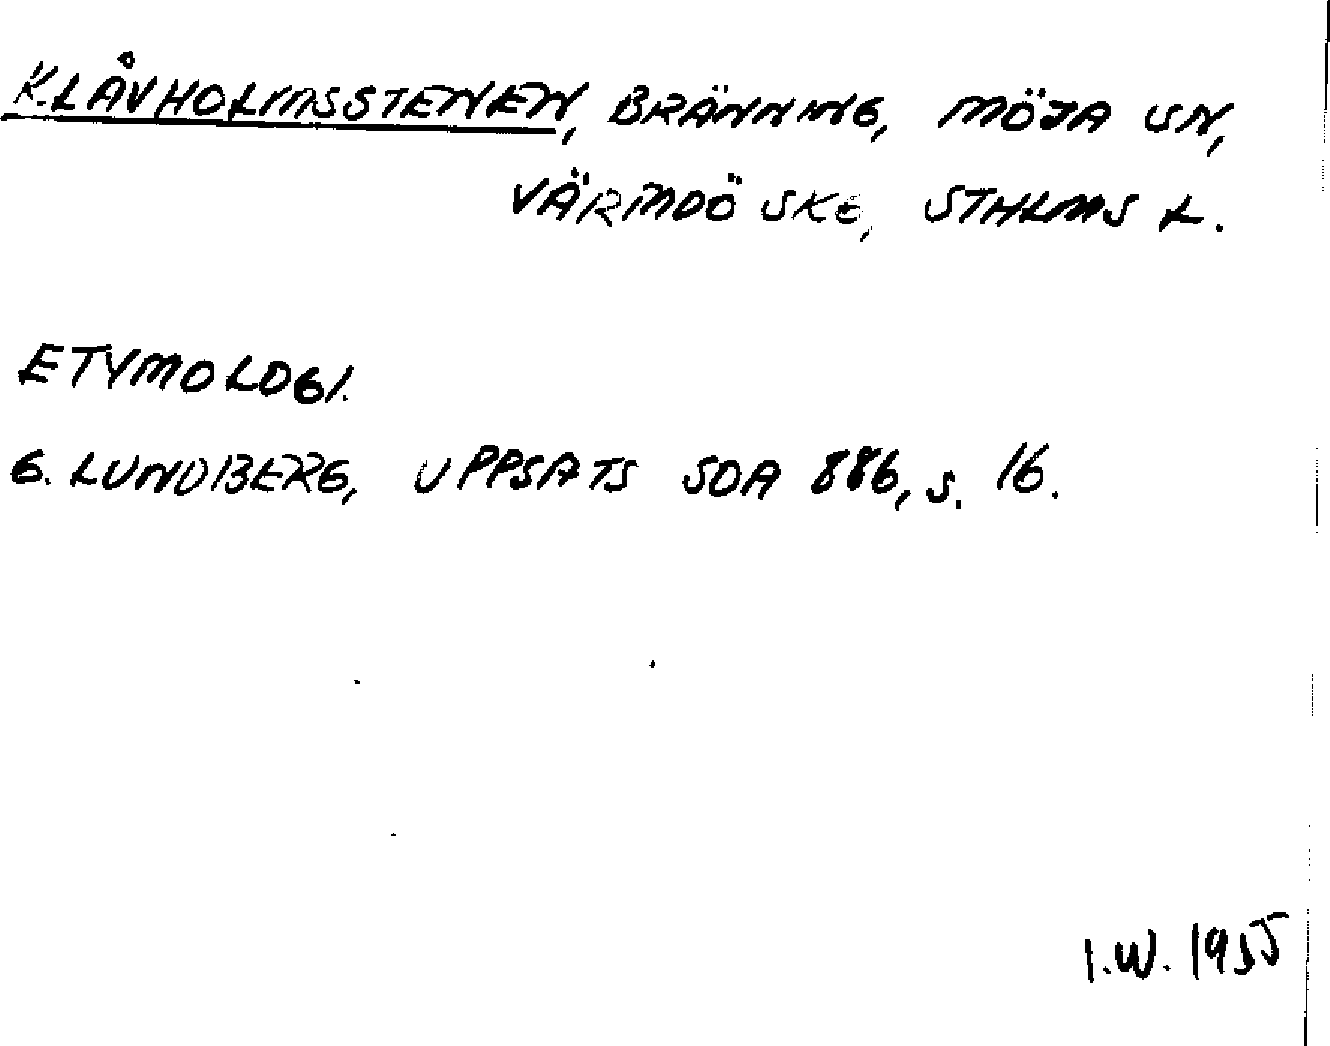 KLÅVHOLMSSTENEN, BRÄNNING, MÖJA SN,
VÄRMDÖ SKG, STHLMS L.
ETYMOLOGI.
G. LUNDBERG, UPPSATS SOA 886, s. 16.
I.W. 1955